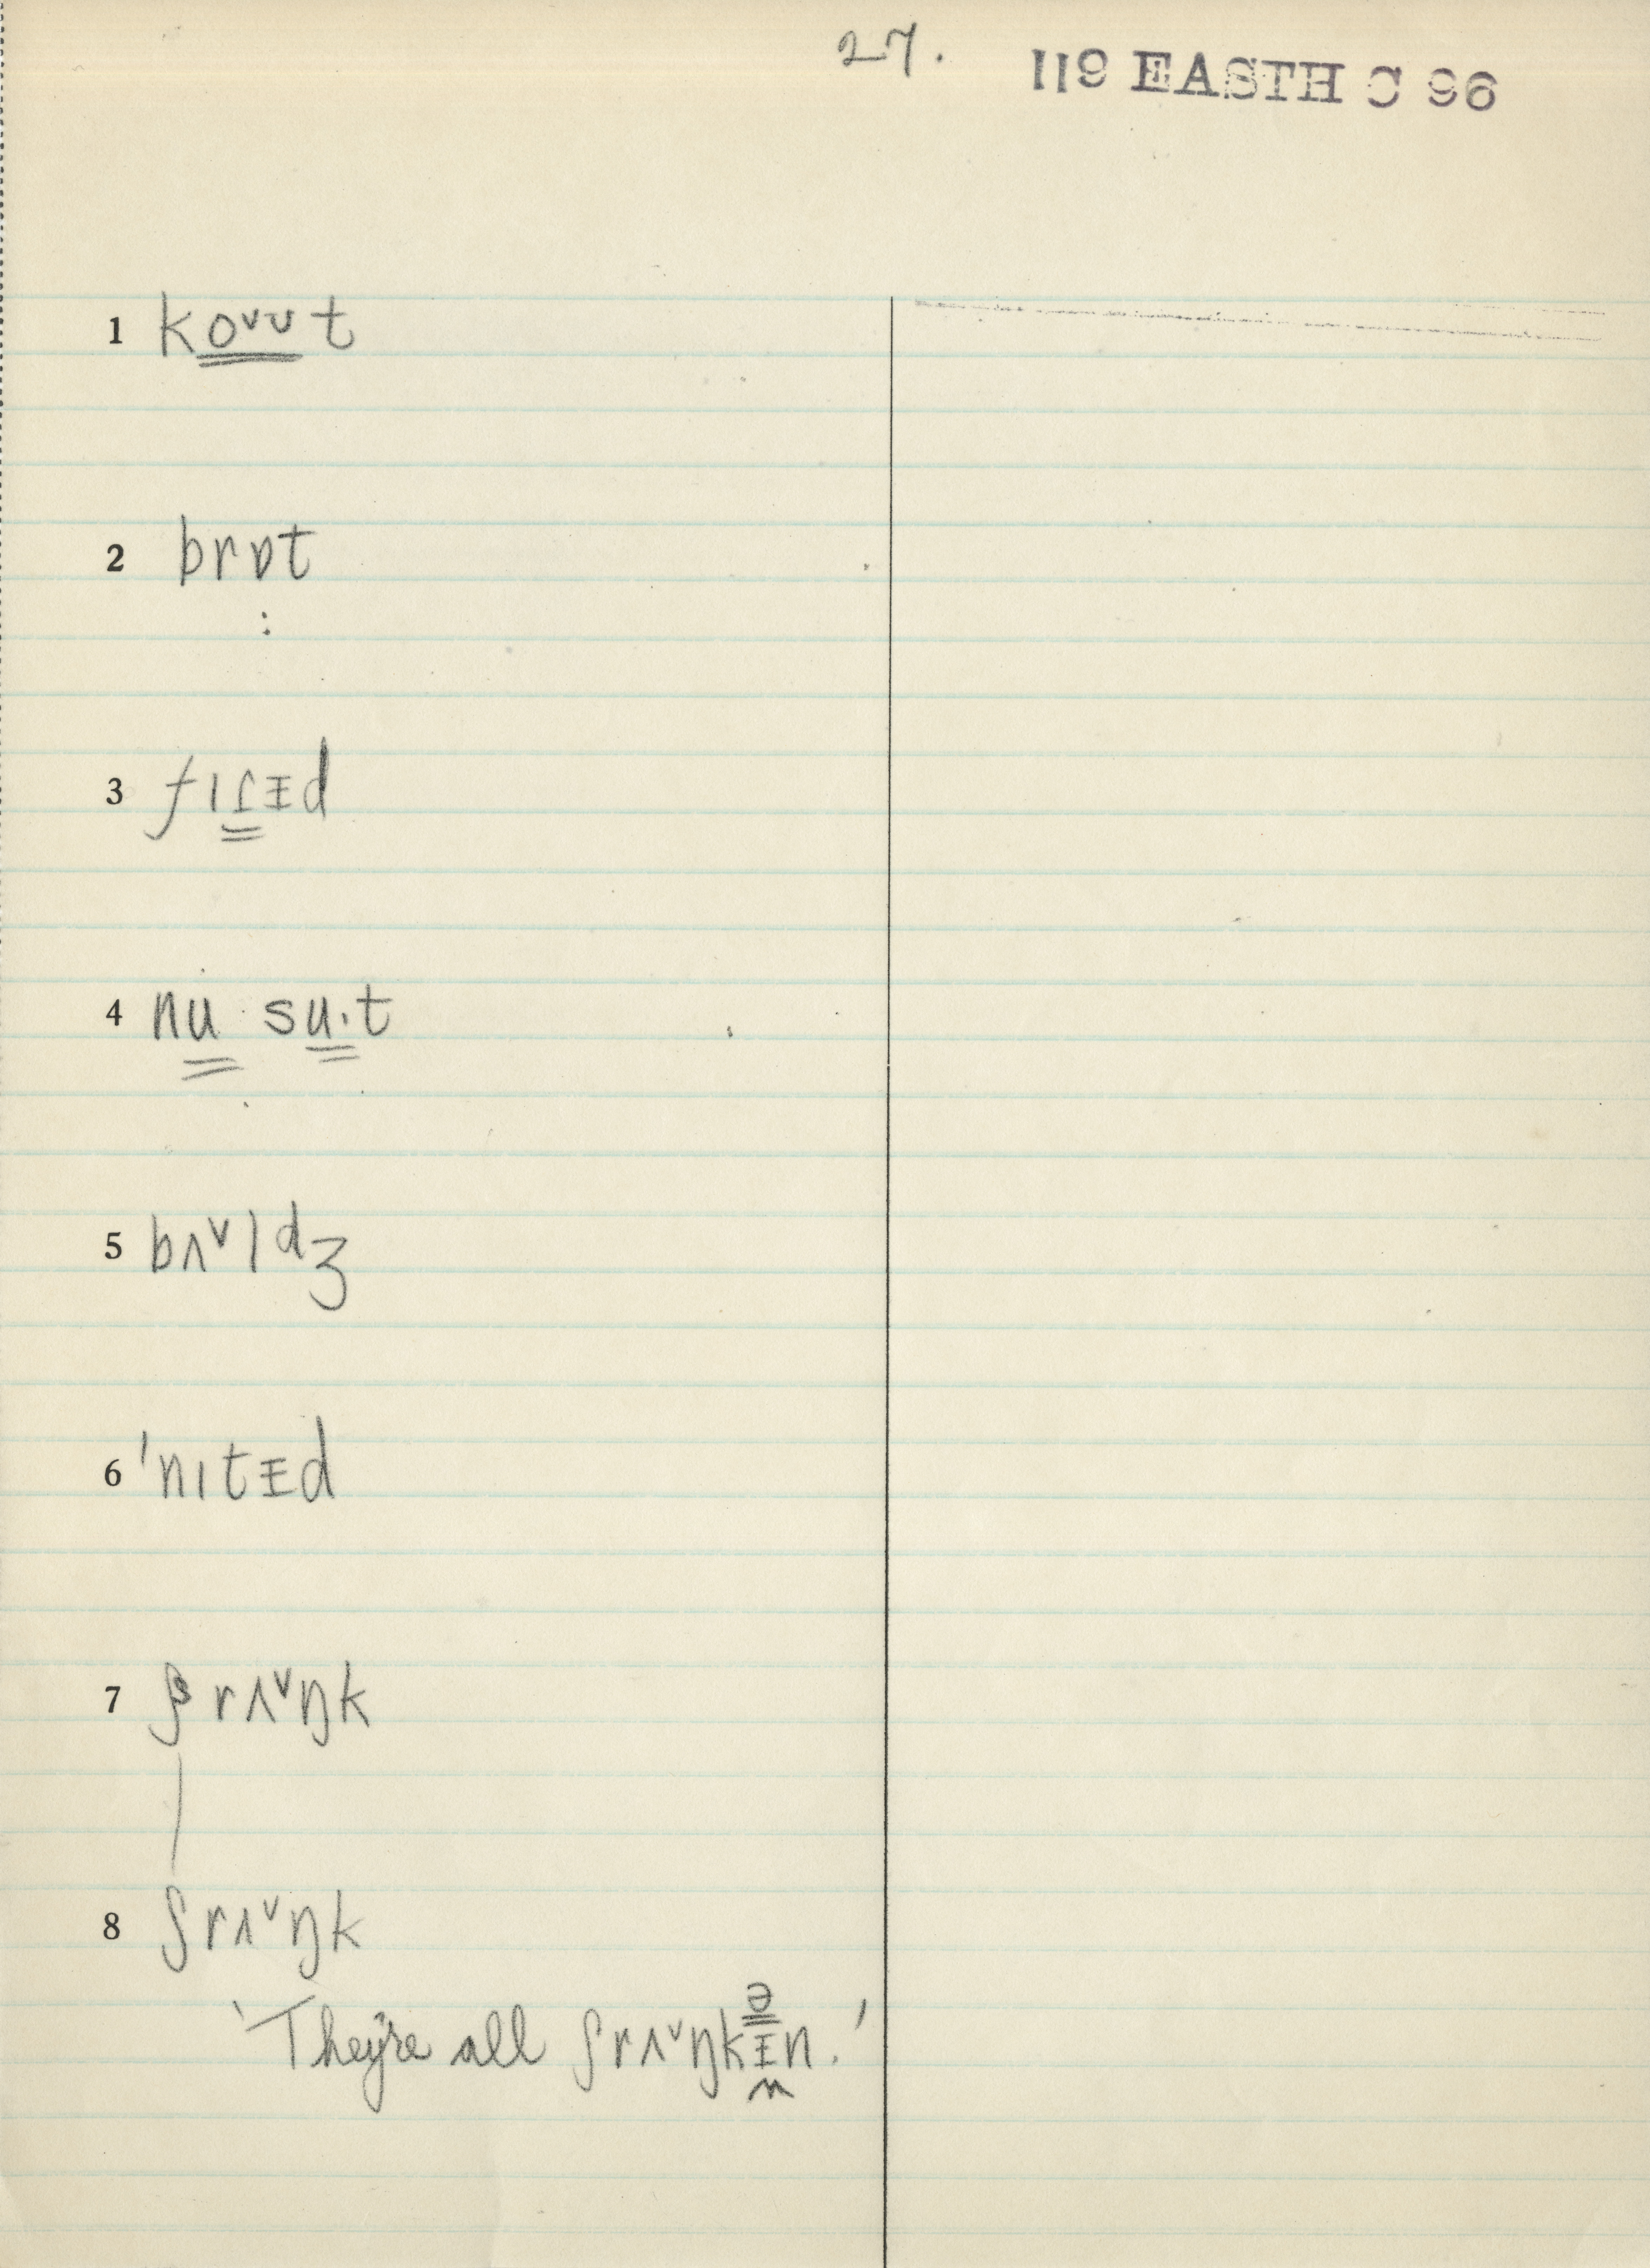 27. 119 EASTH C 96
1 koᵛᴜt
2 brɒt
:
3 fɪʃᵻd
4 nu su·t
5 bʌᵛldʒ
6 'nɪtᵻd
7 ʃrʌᵛŋk
8 ʃrʌᵛŋk
ə
'They're all ʃrʌᵛŋkᵻn.'